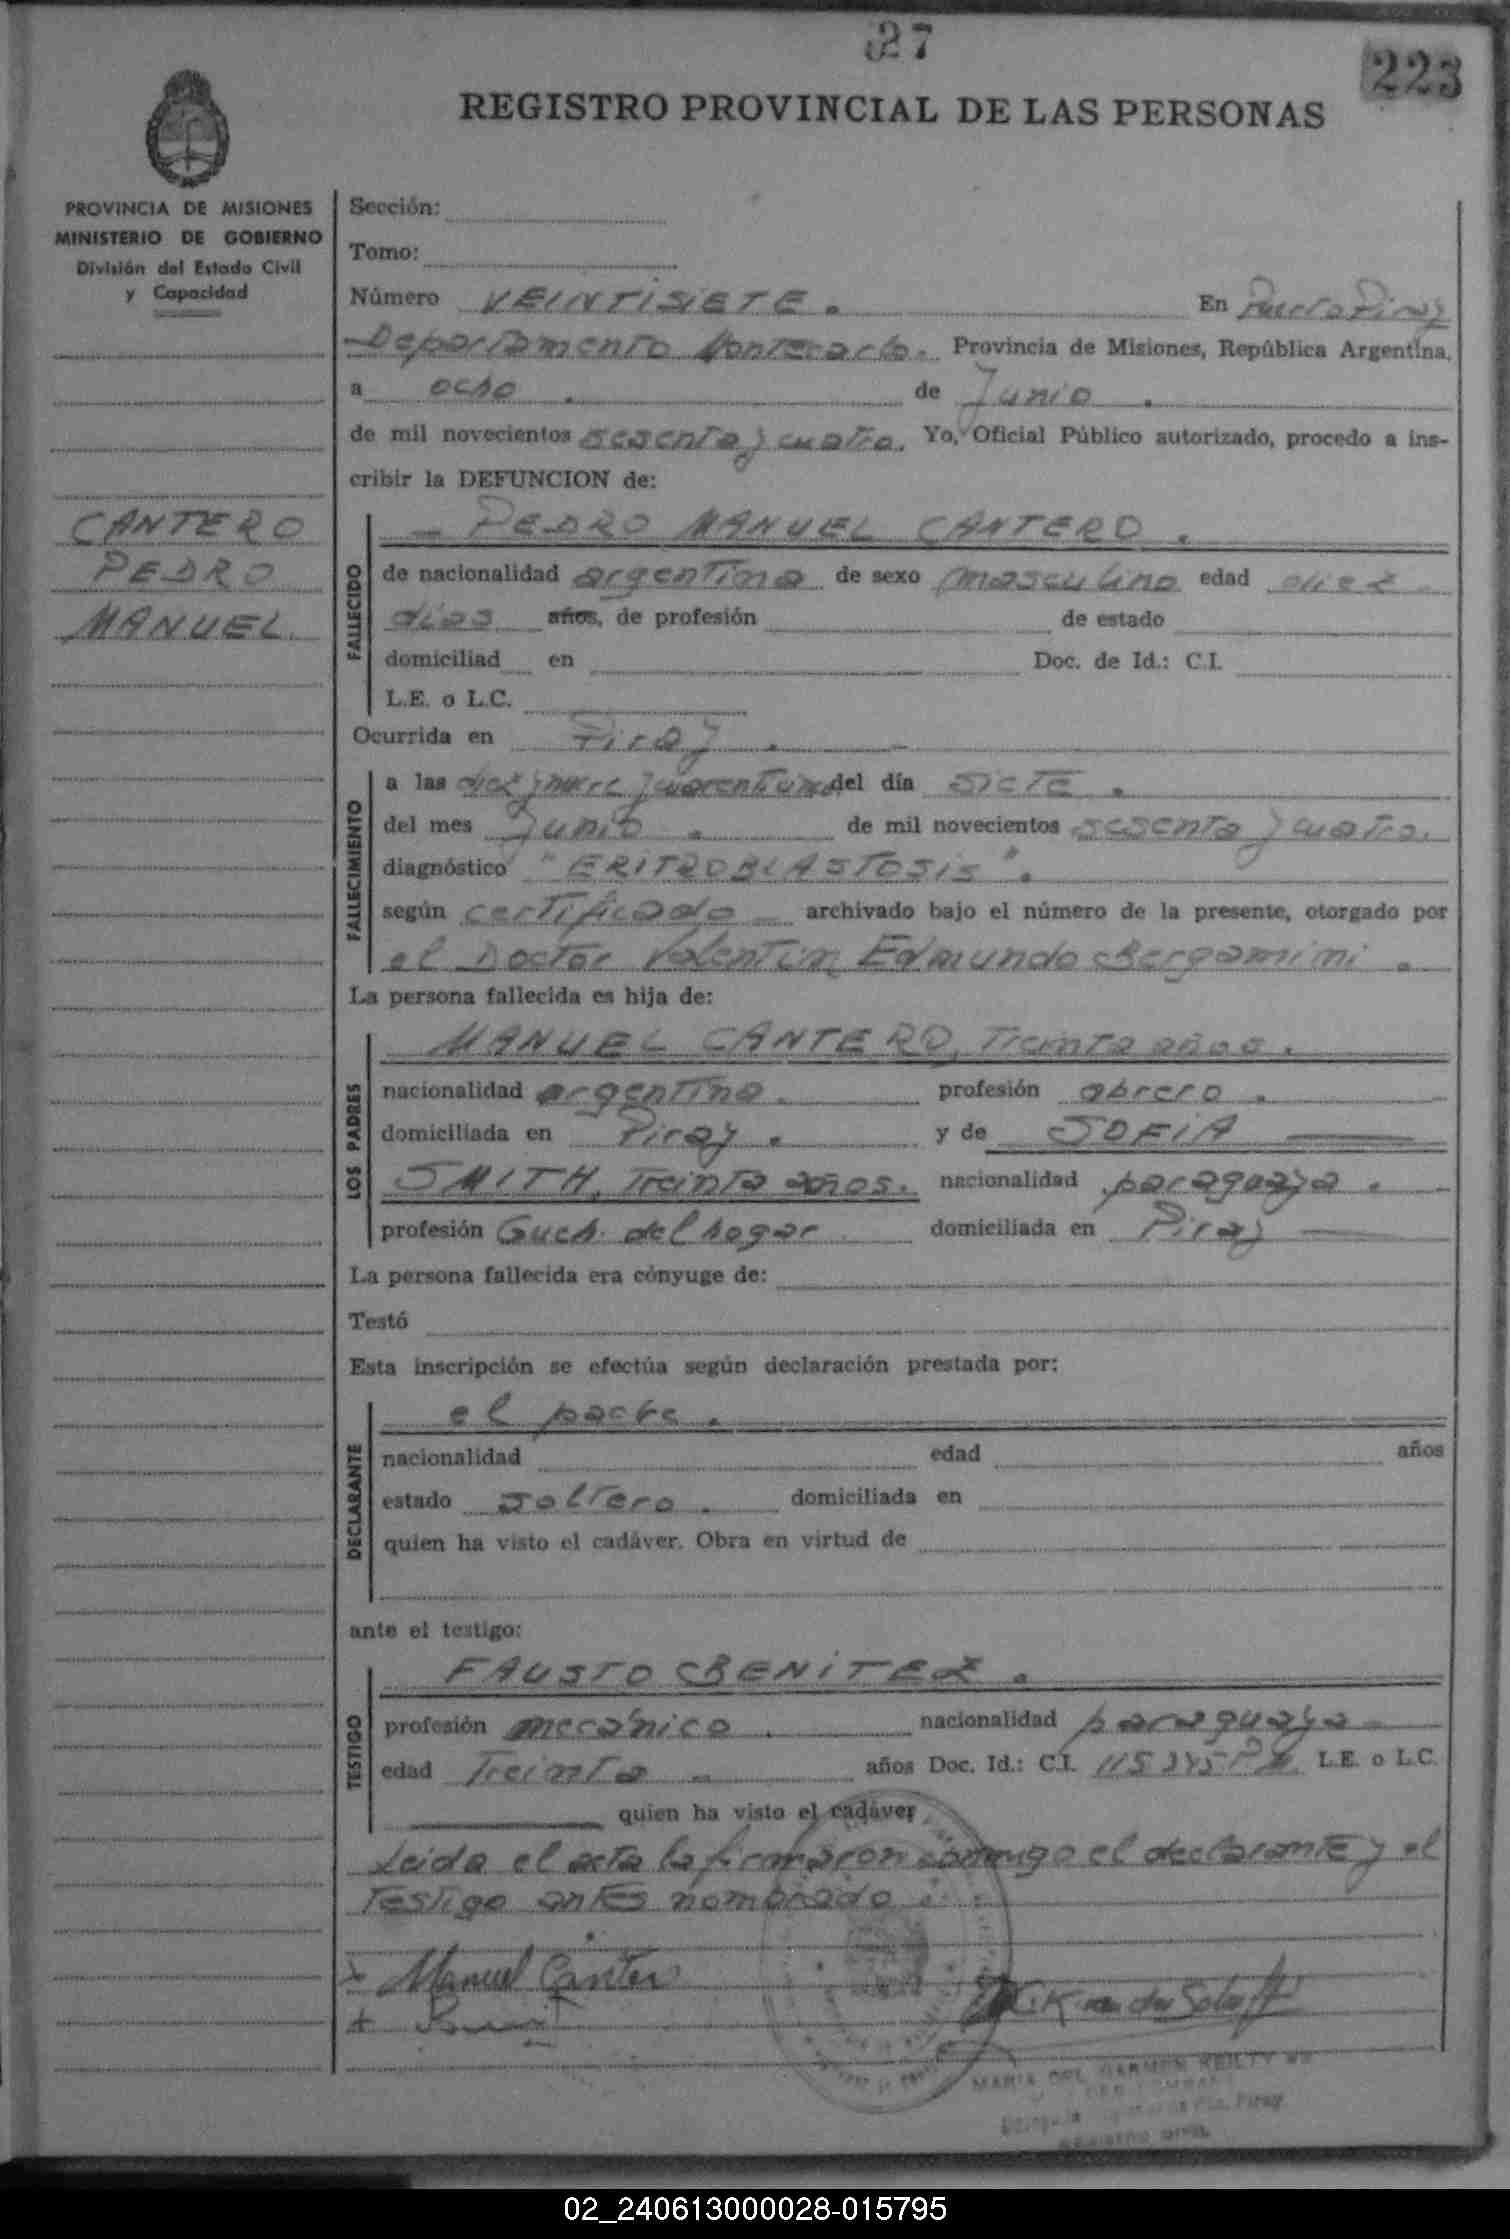 27
223
REGISTRO PROVINCIAL DE LAS PERSONAS
PROVINCIA DE MISIONES
MINISTERIO DE GOBIERNO
División del Estado Civil
y Capacidad
CANTERO
PEDRO
MANUEL
Sección:
Tomo:
Número VEINTISIETE. En Puerto Piray
Departamento Montecarlo. Provincia de Misiones, República Argentina,
a ocho. de Junio.
de mil novecientos sesenta y cuatro. Yo, Oficial Público autorizado, procedo a ins-
cribir la DEFUNCION de:
FALLECIDO
- PEDRO MANUEL CANTERO.
de nacionalidad argentina de sexo masculino edad diez
dias años, de profesión de estado
domiciliad en Doc. de Id.: C.I.
L.E. o L.C.
Ocurrida en Piray.
FALLECIMIENTO
a las diez y nueve y cuarenta del día siete.
del mes Junio. de mil novecientos sesenta y cuatro.
diagnóstico "ERITROBLASTOSIS".
según certificado archivado bajo el número de la presente, otorgado por
el Doctor Valentin Edmundo Bergamini.
La persona fallecida es hija de:
LOS PADRES
MANUEL CANTERO, Treinta años.
nacionalidad argentina. profesión obrero.
domiciliada en Piray. y de SOFIA
SMITH, Treinta años. nacionalidad paraguaya.
profesión Queh. del hogar domiciliada en Piray
La persona fallecida era cónyuge de:
Testó
Esta inscripción se efectúa según declaración prestada por:
DECLARANTE
el padre.
nacionalidad edad años
estado soltero. domiciliada en
quien ha visto el cadáver. Obra en virtud de
ante el testigo:
TESTIGO
FAUSTO BENITEZ.
profesión mecánico. nacionalidad paraguaya
edad Treinta años Doc. Id.: C.I. L.E. o L.C.
quien ha visto el cadáver
Leida el acta la firmaron conmigo el declarante y el
Testigo antes nombrado.
Manuel Cantero
MARIA DEL CARMEN REILTY
Piray
REGISTRO CIVIL
02_240613000028-015795